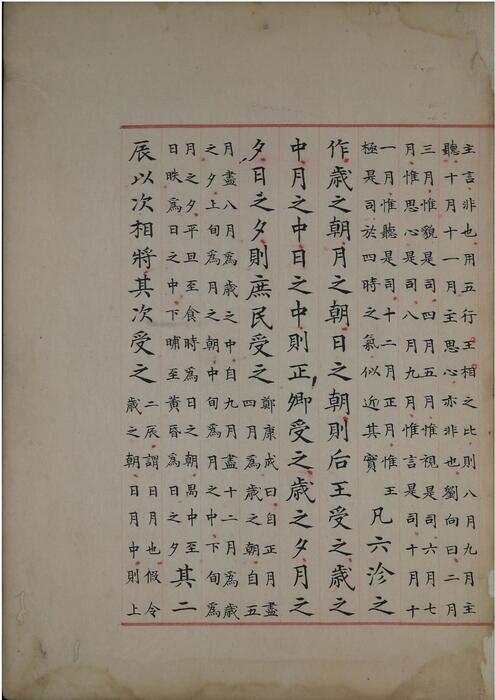 主言非也用五行王相之比則八月九月主
聽十月十一月主思心亦非也劉向曰二月
三月惟貌是司四月五月惟視是司六月七
月惟思心是司八月九月惟言是司十月十
一月惟聽是司十二月正月惟王
極是司於四時之氣似近其實
凡六沴之
作歲之朝月之朝日之朝則后王受之歲之
中月之中日之中則正卿受之歲之夕月之
夕日之夕則庶民受之
鄭康成曰自正月盡
四月爲歲之朝自五
月盡八月爲歲之中自九月盡十二月爲歲
之夕上旬爲月之朝中旬爲月之中下旬爲
月之夕平旦至食時爲日之朝禺中至
日昳爲日之中下晡至黃昏爲日之夕
其二
辰以次相將其次受之
二辰謂日月也假令
歲之朝日月中則上